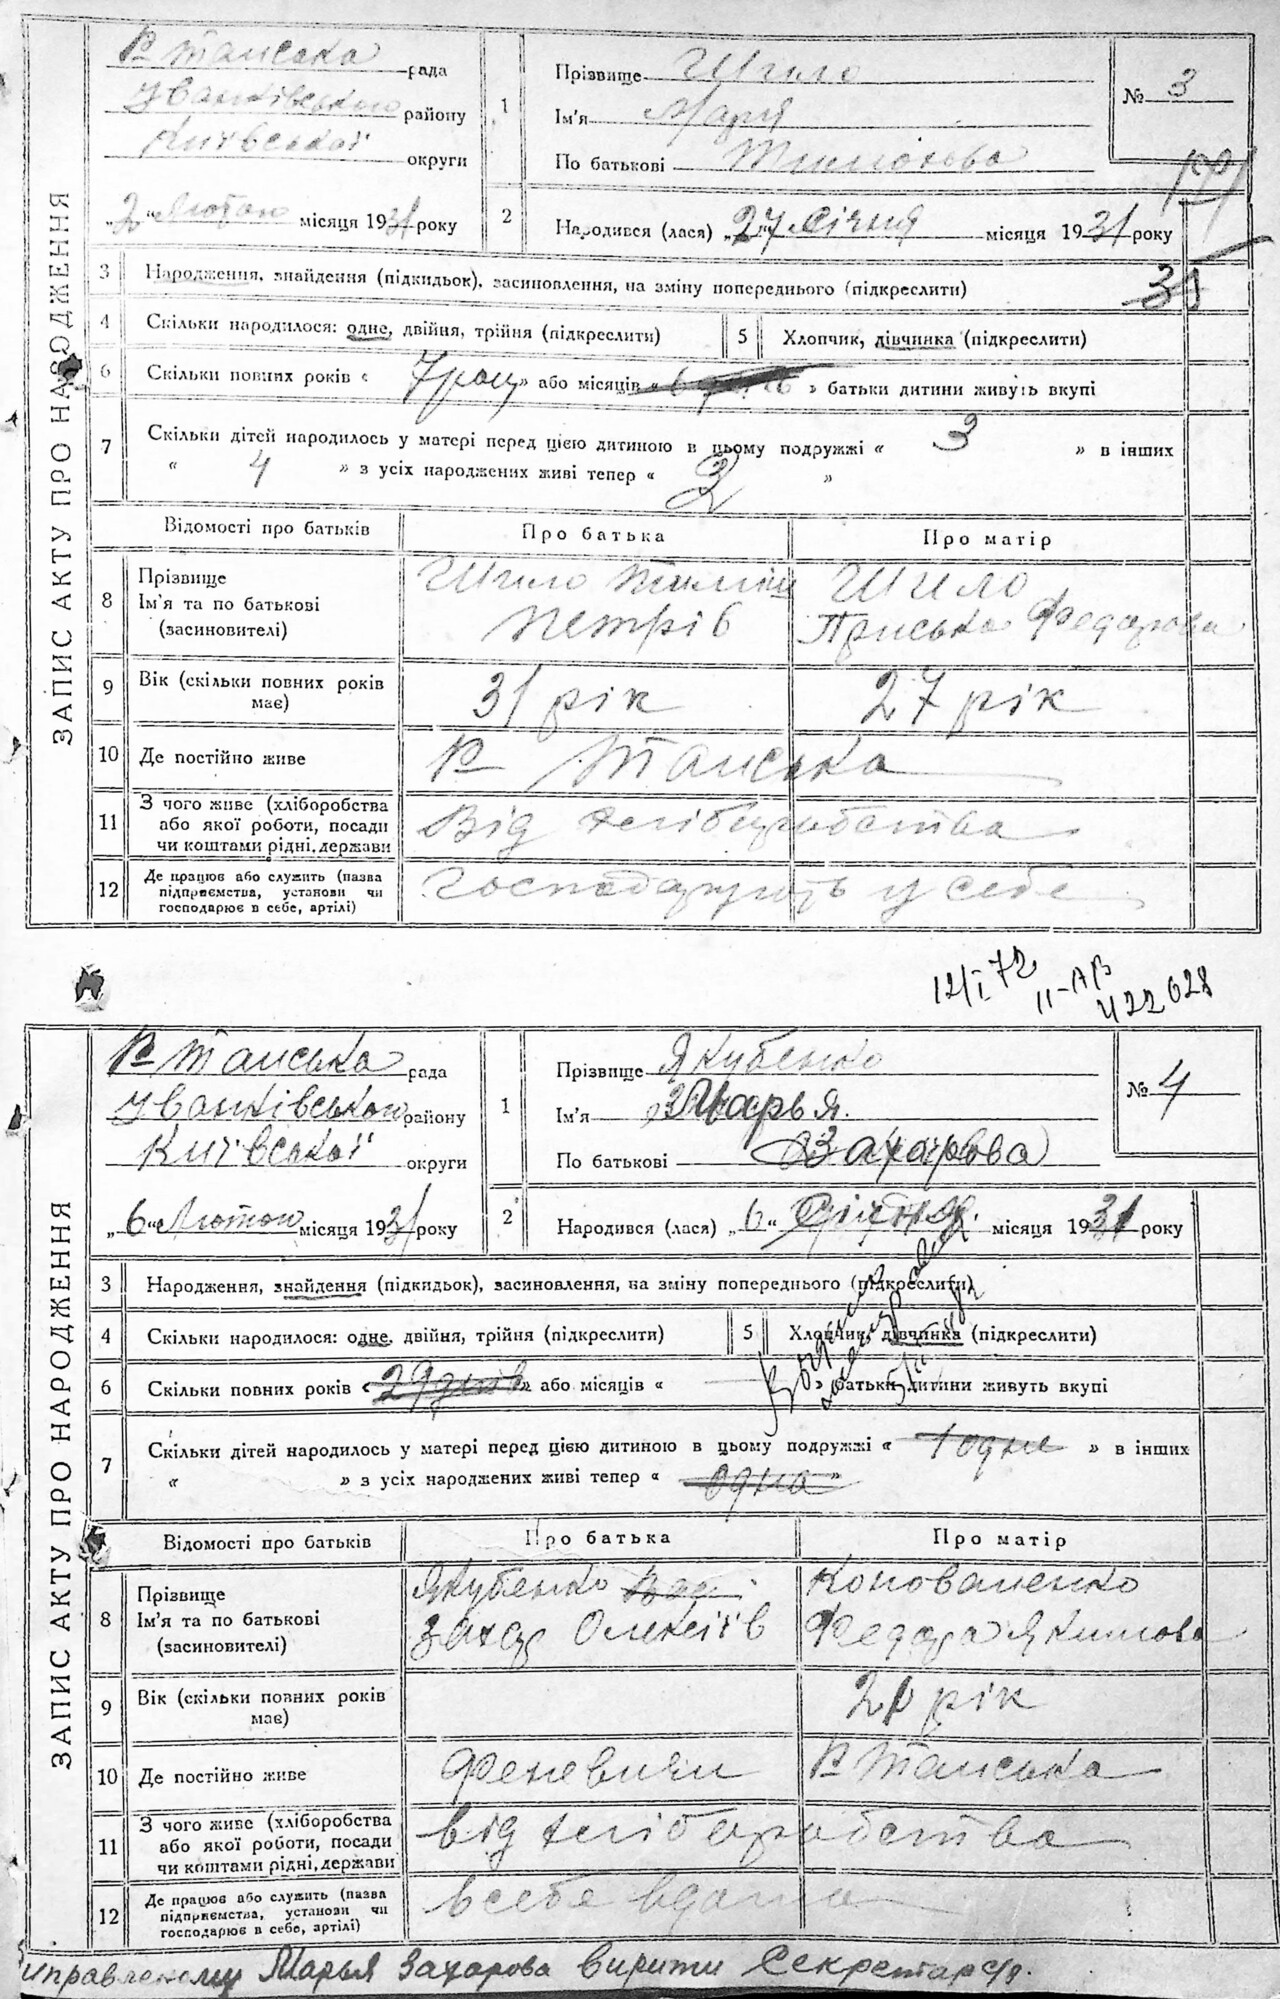 ЗАПИС АКТУ ПРО НАРОДЖЕННЯ
Р Танська рада
Іванківського району
Київської округи
„2“ Лютого місяця 1931 року
1 Прізвище Шило
Ім'я Марія
По батькові Тимохова
№ 3
2 Народився (лася) „27“ Січня місяця 1931 року
35
3 Народження, знайдення (підкидьок), засиновлення, на зміну попереднього (підкреслити)
4 Скільки народилося: одне, двійня, трійня (підкреслити)
5 Хлопчик, дівчинка (підкреслити)
6 Скільки повних років « 7 » або місяців « » батьки дитини живуть вкупі
7 Скільки дітей народилось у матері перед цією дитиною в цьому подружжі « 3 » в інших
« 4 » з усіх народжених живі тепер « 3 »
Відомості про батьків Про батька Про матір
8 Прізвище Ім'я та по батькові (засиновителі)
Шило Петрів
Шило Приська Федорова
9 Вік (скільки повних років має) 31 рік 27 рік
10 Де постійно живе Р Танська
11 З чого живе (хліборобства або якої роботи, посади чи коштами рідні, держави Від хліборобства
12 Де працює або служить (назва підприємства, установи чи господарює в себе, артілі) Господарують у себе
12/I 72
II-АВ
422628
ЗАПИС АКТУ ПРО НАРОДЖЕННЯ
Р Танська рада
Іванківського району
Київської округи
„6“ Лютого місяця 1931 року
1 Прізвище Якубенко
Ім'я Марья
По батькові Захарова
№ 4
2 Народився (лася) „6“ Січня місяця 1931 року
3 Народження, знайдення (підкидьок), засиновлення, на зміну попереднього (підкреслити)
4 Скільки народилося: одне, двійня, трійня (підкреслити)
5 Хлопчик, дівчинка (підкреслити)
6 Скільки повних років « 29 днів » або місяців « » батьки дитини живуть вкупі
7 Скільки дітей народилось у матері перед цією дитиною в цьому подружжі « 1 одне » в інших
« » з усіх народжених живі тепер « одна »
Відомості про батьків Про батька Про матір
8 Прізвище Ім'я та по батькові (засиновителі)
Якубенко Захар Олексіїв
Коноваленко Федора Якимова
9 Вік (скільки повних років має) 21 рік
10 Де постійно живе Феневичи Р Танська
11 З чого живе (хліборобства або якої роботи, посади чи коштами рідні, держави від хліборобства
12 Де працює або служить (назва підприємства, установи чи господарює в себе, артілі) в себе вдома
иправленому Марья Захарова вирити Секретар с/р.